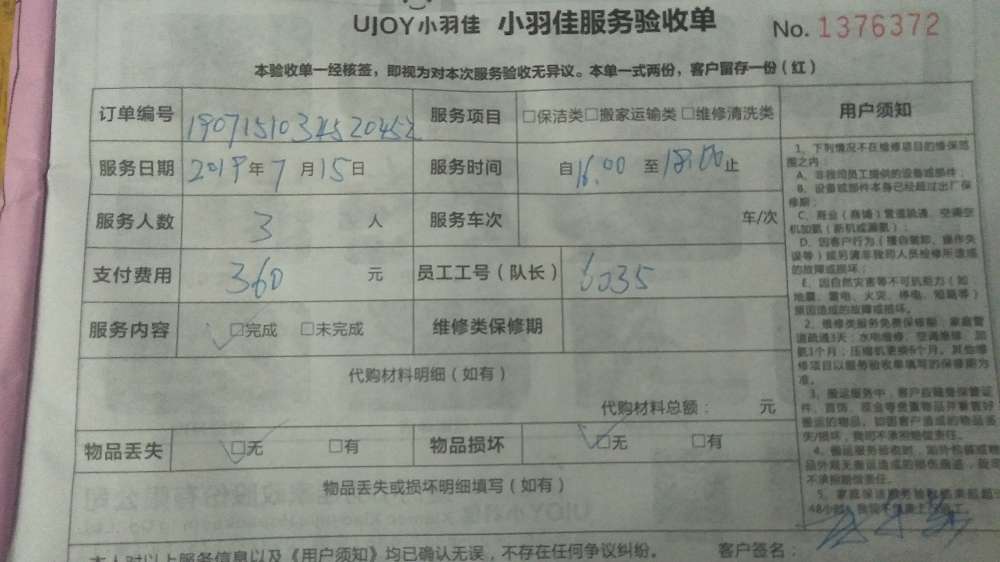 UJOY小羽佳 小羽佳服务验收单 No. 1376372
本验收单一经核签，即视为对本次服务验收无异议。本单一式两份，客户留存一份（红）
订单编号 1907151034520452 服务项目 □保洁类□搬家运输类□维修清洗类
服务日期 2019年7月15日 服务时间 自16:00至18:00止
服务人数 3 人 服务车次 车/次
支付费用 360 元 员工工号（队长） 6035
服务内容 □完成 □未完成 维修类保修期
代购材料明细（如有）
代购材料总额： 元
物品丢失 □无 □有 物品损坏 □无 □有
物品丢失或损坏明细填写（如有）
本人对以上服务信息以及《用户须知》均已确认无误，不存在任何争议纠纷。 客户签名：
用户须知
1、下列情况不在维修项目的维保范
围之内：
A、非我司员工提供的设备或部件；
B、设备或部件本身已经超过出厂保
修期；
C、商业（商铺）管道疏通、空调空
机加氨（新机或漏氨）；
D、因客户行为（擅自装卸、操作失
误等）或另请非我司人员检修所造成
的故障或损坏；
E、因自然灾害等不可抗能力（如
地震、雷电、火灾、停电、短路等）
原因造成的故障或损坏。
2、维修类服务免费保修期：家庭管
道疏通3天；水电维修、空调维修、加
氨1个月；压缩机更换6个月。其他维
修项目以服务验收单填写的保修期为
准。
3、搬运服务中，客户应随身保管证
件、首饰、现金等贵重物品并看管好
搬运的物品，如因客户造成的物品丢
失/损坏，我司不承担赔偿责任。
4、搬运服务验收时，如外包装或物
品外观无搬运造成的损伤痕迹，我司
不承担赔偿责任。
5、家庭保洁服务验收结束超过
48小时，